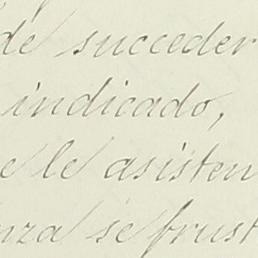 de succeder
indicado,
e le asisten
nza se frust